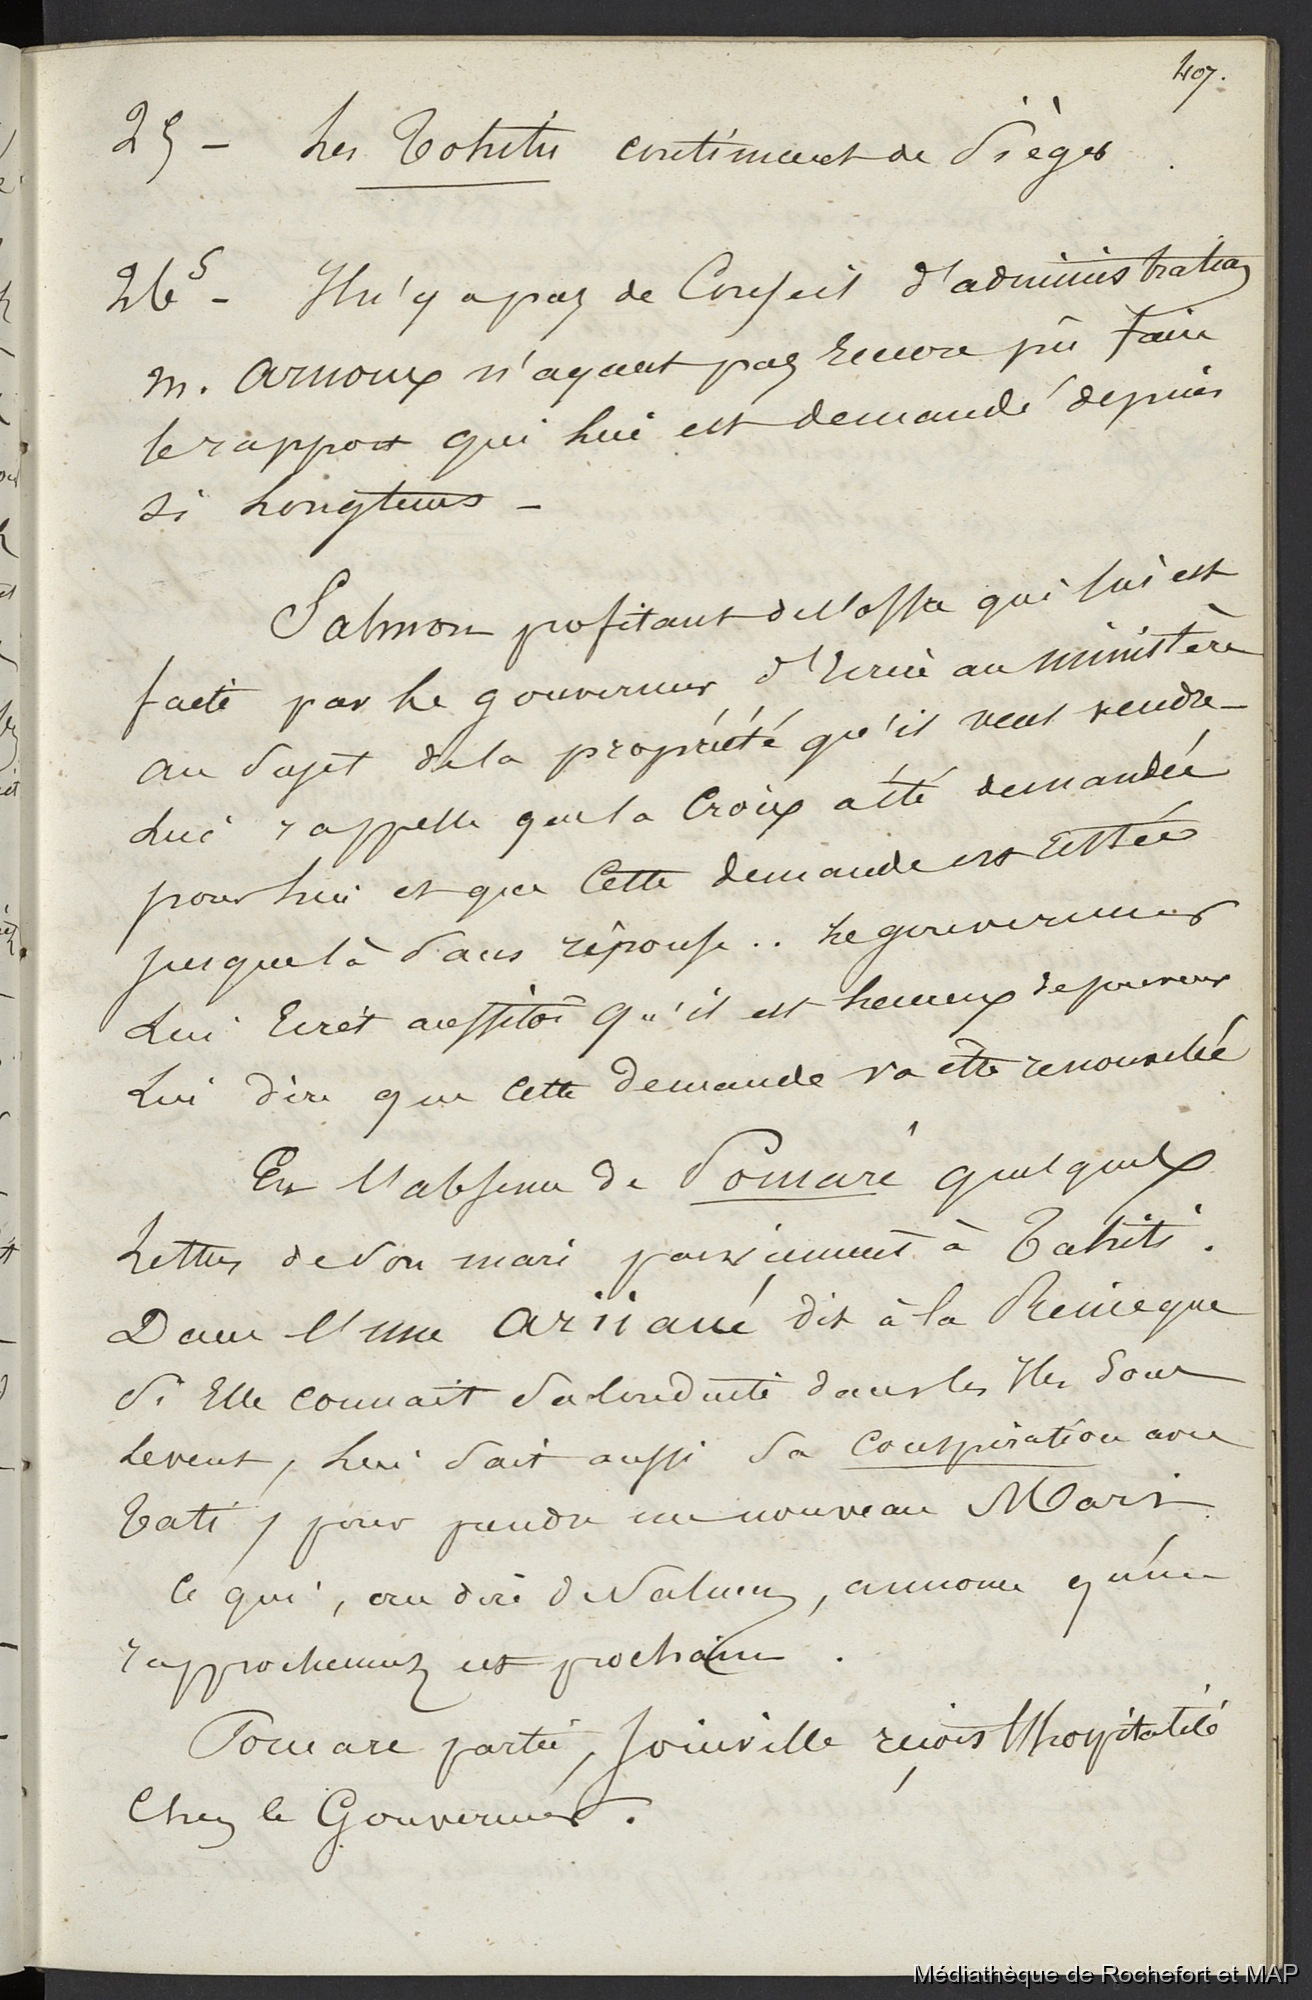 407.
25 - Les Tohitu continuent de siéger.
26 S - Il n'y a pas de Conseil d'administration
M. Arnoux n'ayant pas encore pû faire
le rapport qui lui est demandé depuis
si longtems -
Salmon profitant de l'offre qui lui est
faite par le gouverneur d'écrire au ministère
au sujet de la propriété qu'il veut vendre -
lui rappelle que la Croix a été demandée
pour lui et que cette demande est restée
jusque là sans réponse .. le gouverneur
lui écrit aussitôt qu'il est heureux de pouvoir
lui dire que cette demande va être renouvelée
En l'absence de Pomaré quelques
lettres de son mari parviennent à Tahiti.
Dans l'une Ariiaué dit à la Reine que
si Elle connait sa conduite dans les Iles sous
le vent, lui sait aussi sa conspiration avec
Tati, pour prendre un nouveau Mari
ce qui, au dire de Salmon, annonce qu'un
rapprochement est prochain.
Pomare partie, Joinville reçois l'hospitalité
chez le Gouverneur.
Médiathèque de Rochefort et MAP